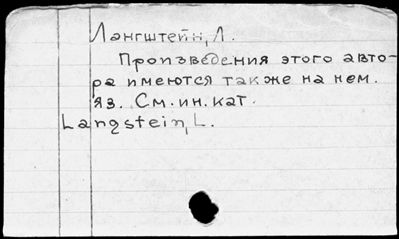 Лангштейн, Л.
Произведения этого авто-
ра имеются также на нем.
яз. См. ин. кат.
Langstein, L.